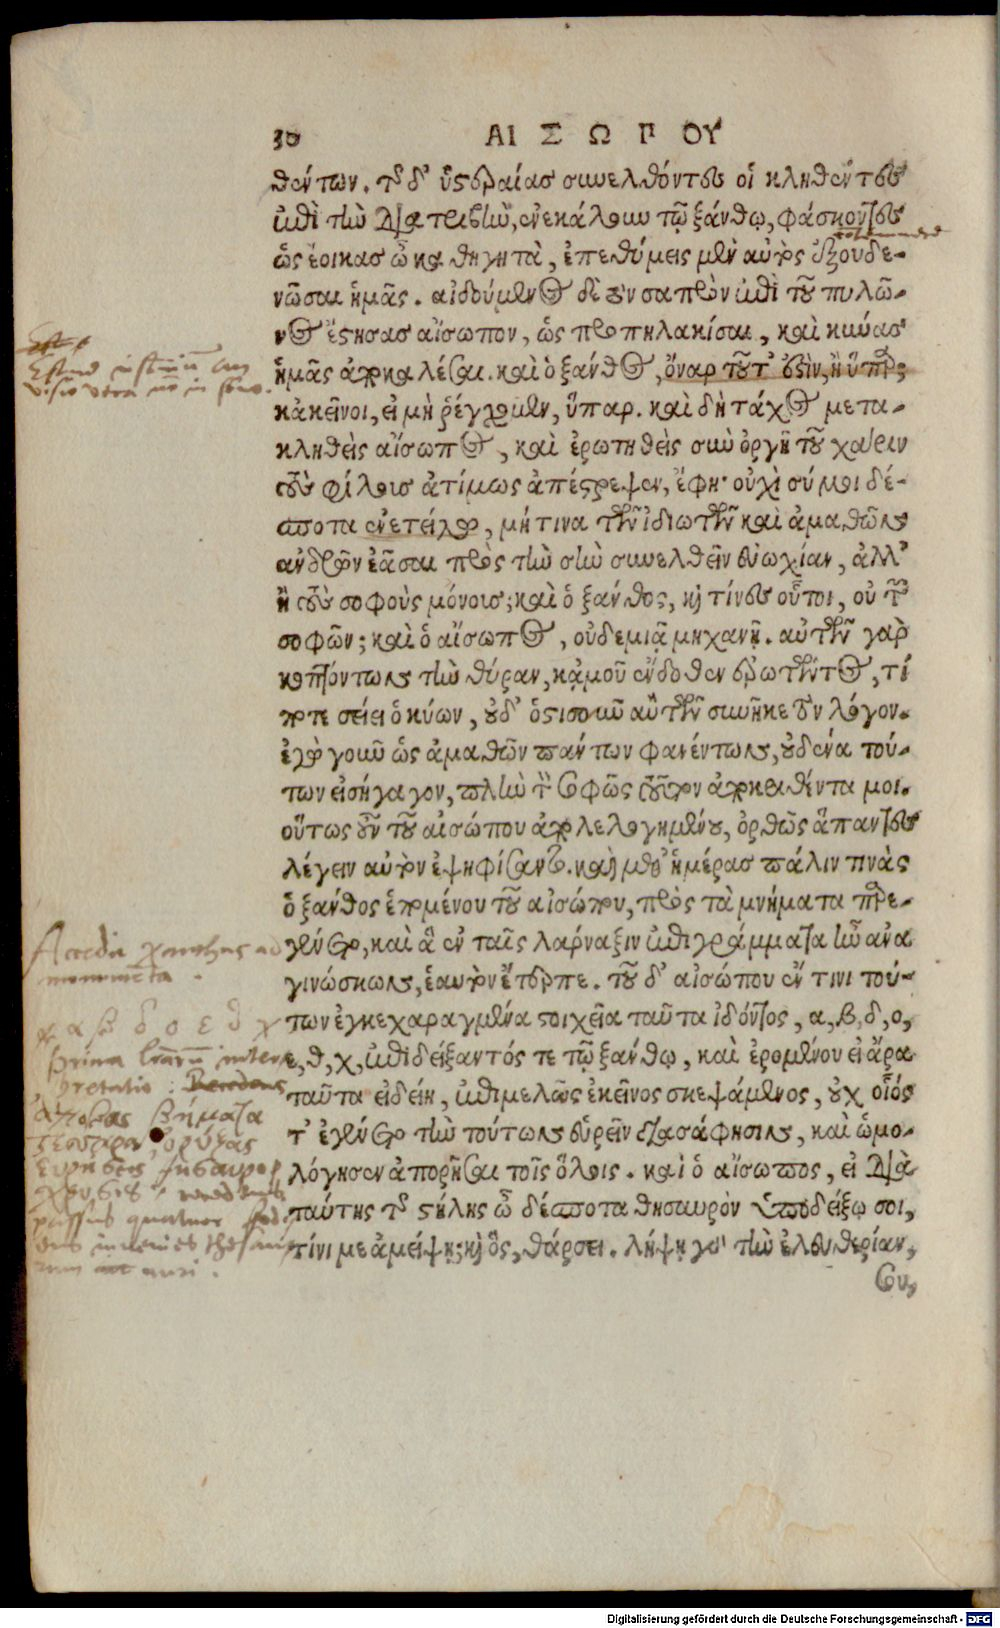 30
ΑΙ Σ Ω Π ΟΥ
θέντων. τῆ δ' ὑστεραίας συνελθόντες οἱ κληθέντες
ἐπὶ τὴν διατριβὴν, ἐνεκάλουν τῷ ξάνθῳ, φάσκοντες
ὡς ἔοικας ὦ καθηγητὰ, ἐπεθύμεις μὲν αὐτὸς ἐξουδε-
νῶσαι ἡμᾶς. αἰδούμενος δὲ τὸν σαπρὸν ἐπὶ τοῦ πυλῶ-
νος ἔστησας αἴσωπον, ὡς προπηλακίσαι, καὶ κύνας
ἡμᾶς ἀποκαλέσαι. καὶ ὁ ξάνθος, ὄναρ τοῦτ' ἐστὶν, ἢ ὕπαρ;
κἀκεῖνοι, εἰ μὴ ῥέγχομεν, ὕπαρ. καὶ δὴ τάχος μετα-
κληθεὶς αἴσωπος, καὶ ἐρωτηθεὶς σὺν ὀργῇ τοῦ χάριν
τοὺς φίλους ἀτίμως ἀπέστρεψεν, ἔφη· οὐχὶ σύ μοι δέ-
σποτα ἐνετείλω, μή τινα τῶν ἰδιωτῶν καὶ ἀμαθῶν
ἀνδρῶν ἐᾶσαι πρὸς τὴν σὴν συνελθεῖν εὐωχίαν, ἀλλ'
ἢ τοὺς σοφοὺς μόνους; καὶ ὁ ξάνθος, καὶ τίνες οὗτοι, οὐ τῶν
σοφῶν; καὶ ὁ αἴσωπος, οὐδεμιᾷ μηχανῇ. αὐτῶν γὰρ
κοπτόντων τὴν θύραν, κἀμοῦ ἔνδοθεν ἐρωτῶντος, τί
ποτε σείει ὁ κύων, οὐδ' ὁστισοῦν αὐτῶν συνῆκε τὸν λόγον.
ἐγὼ γοῦν ὡς ἀμαθῶν πάντων φανέντων, οὐδένα τού-
των εἰσήγαγον, πλὴν τὸν σοφῶς τοῦτον ἀποκριθέντα μοι.
οὕτως οὖν τοῦ αἰσώπου ἀπολελογημένου, ὀρθῶς ἅπαντες
λέγειν αὐτὸν ἐψηφίσαντο. καὶ μεθ' ἡμέρας πάλιν τινὰς
ὁ ξάνθος ἑπομένου τοῦ αἰσώπου, πρὸς τὰ μνήματα παρε-
γένετο, καὶ ἃ ἐν ταῖς λάρναξιν ἐπιγράμματα ἦν ἀνα
γινώσκων, ἑαυτὸν ἔτερπε. τοῦ δ' αἰσώπου ἔν τινι τού-
των ἐγκεχαραγμένα στοιχεῖα ταῦτα ἰδόντος, α, β, δ, ο,
ε, θ, χ, ἐπιδείξαντός τε τῷ ξάνθῳ, καὶ ἐρομένου εἰ ἄρα
ταῦτα εἰδείη, ἐπιμελῶς ἐκεῖνος σκεψάμενος, οὐχ οἷός
τ' ἐγένετο τὴν τούτων εὑρεῖν διασάφησιν, καὶ ὡμο-
λόγησεν ἀπορῆσαι τοῖς ὅλοις. καὶ ὁ αἴσωπος, εἰ διὰ
ταύτης τῆς στήλης ὦ δέσποτα θησαυρὸν ὑποδείξω σοι,
τίνι με ἀμείψῃ; καὶ ὃς, θάρσει. λήψῃ γὰρ τὴν ἐλευθερίαν,
σου,
Accedit ad
monumenta.
α β δ ο ε θ χ
prima interpretatio:
ἀποβας βήματα
τέσσαρα, ὀρύξας
εὑρήσεις θησαυρον
χρυσίου
passus quatuor
invenies thesaurum
auri.
Digitalisierung gefördert durch die Deutsche Forschungsgemeinschaft - DFG